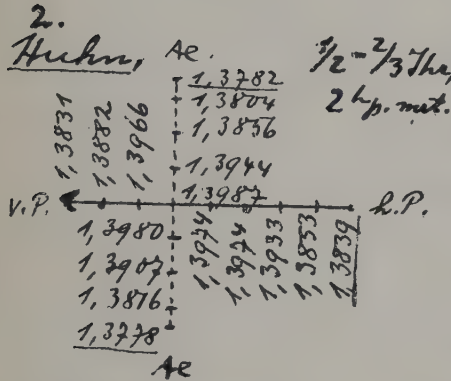 2.
Huhn, Ae. 1/2-2/3 Ihr,
2 h p. mrt.
1,3782
1,3804
1,3856
1,3944
1,3987
1,3831
1,3882
1,3966
v.P. h.P.
1,3980
1,3907
1,3876
1,3778
1,3974
1,3974
1,3933
1,3853
1,3839
Ae